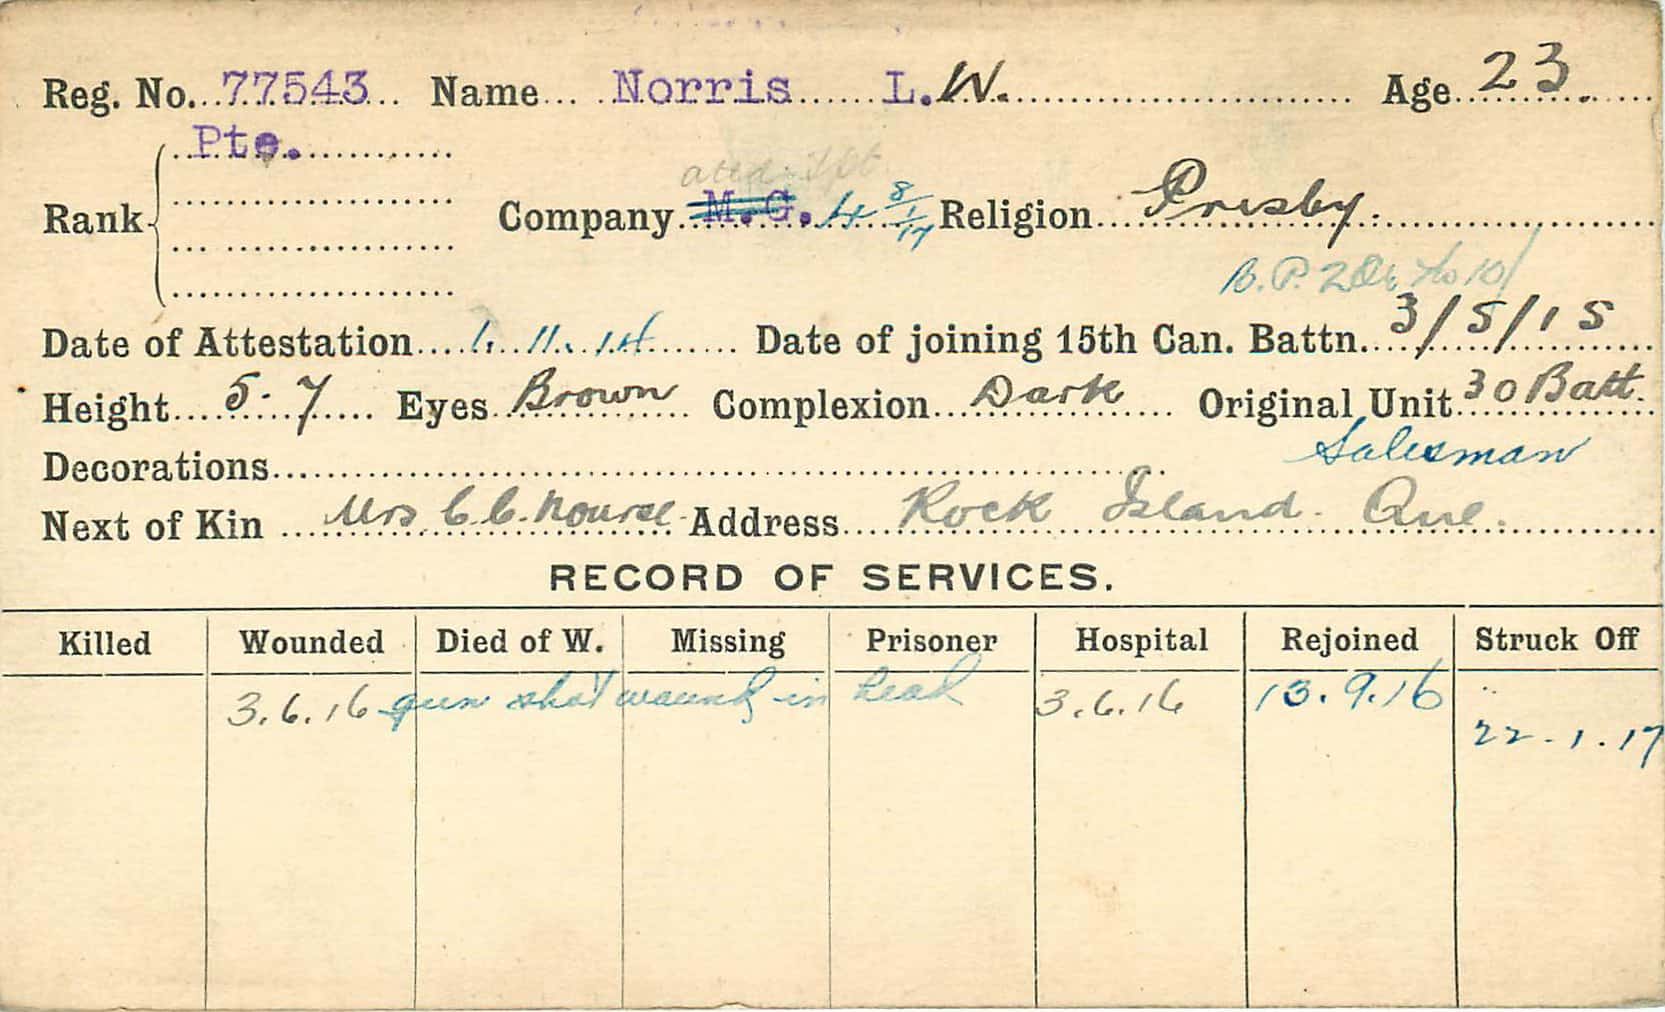 Reg. No. 77543 Name Norris L.W. Age 23.
Pte.
Rank
Company M.G. 4 8/1/17 Religion Presby.
B.P. 2
Date of Attestation 1. 11. 14 Date of joining 15th Can. Battn. 3/5/15
Height 5-7 Eyes Brown Complexion Dark Original Unit 30 Batt.
Salesman
Decorations
Next of Kin Mrs. C. C. Nourse Address Rock Island. Que.
RECORD OF SERVICES.
Killed Wounded Died of W. Missing Prisoner Hospital Rejoined Struck Off
3.6.16 gun shot wound in head 3.6.16 13.9.16
22-1.17